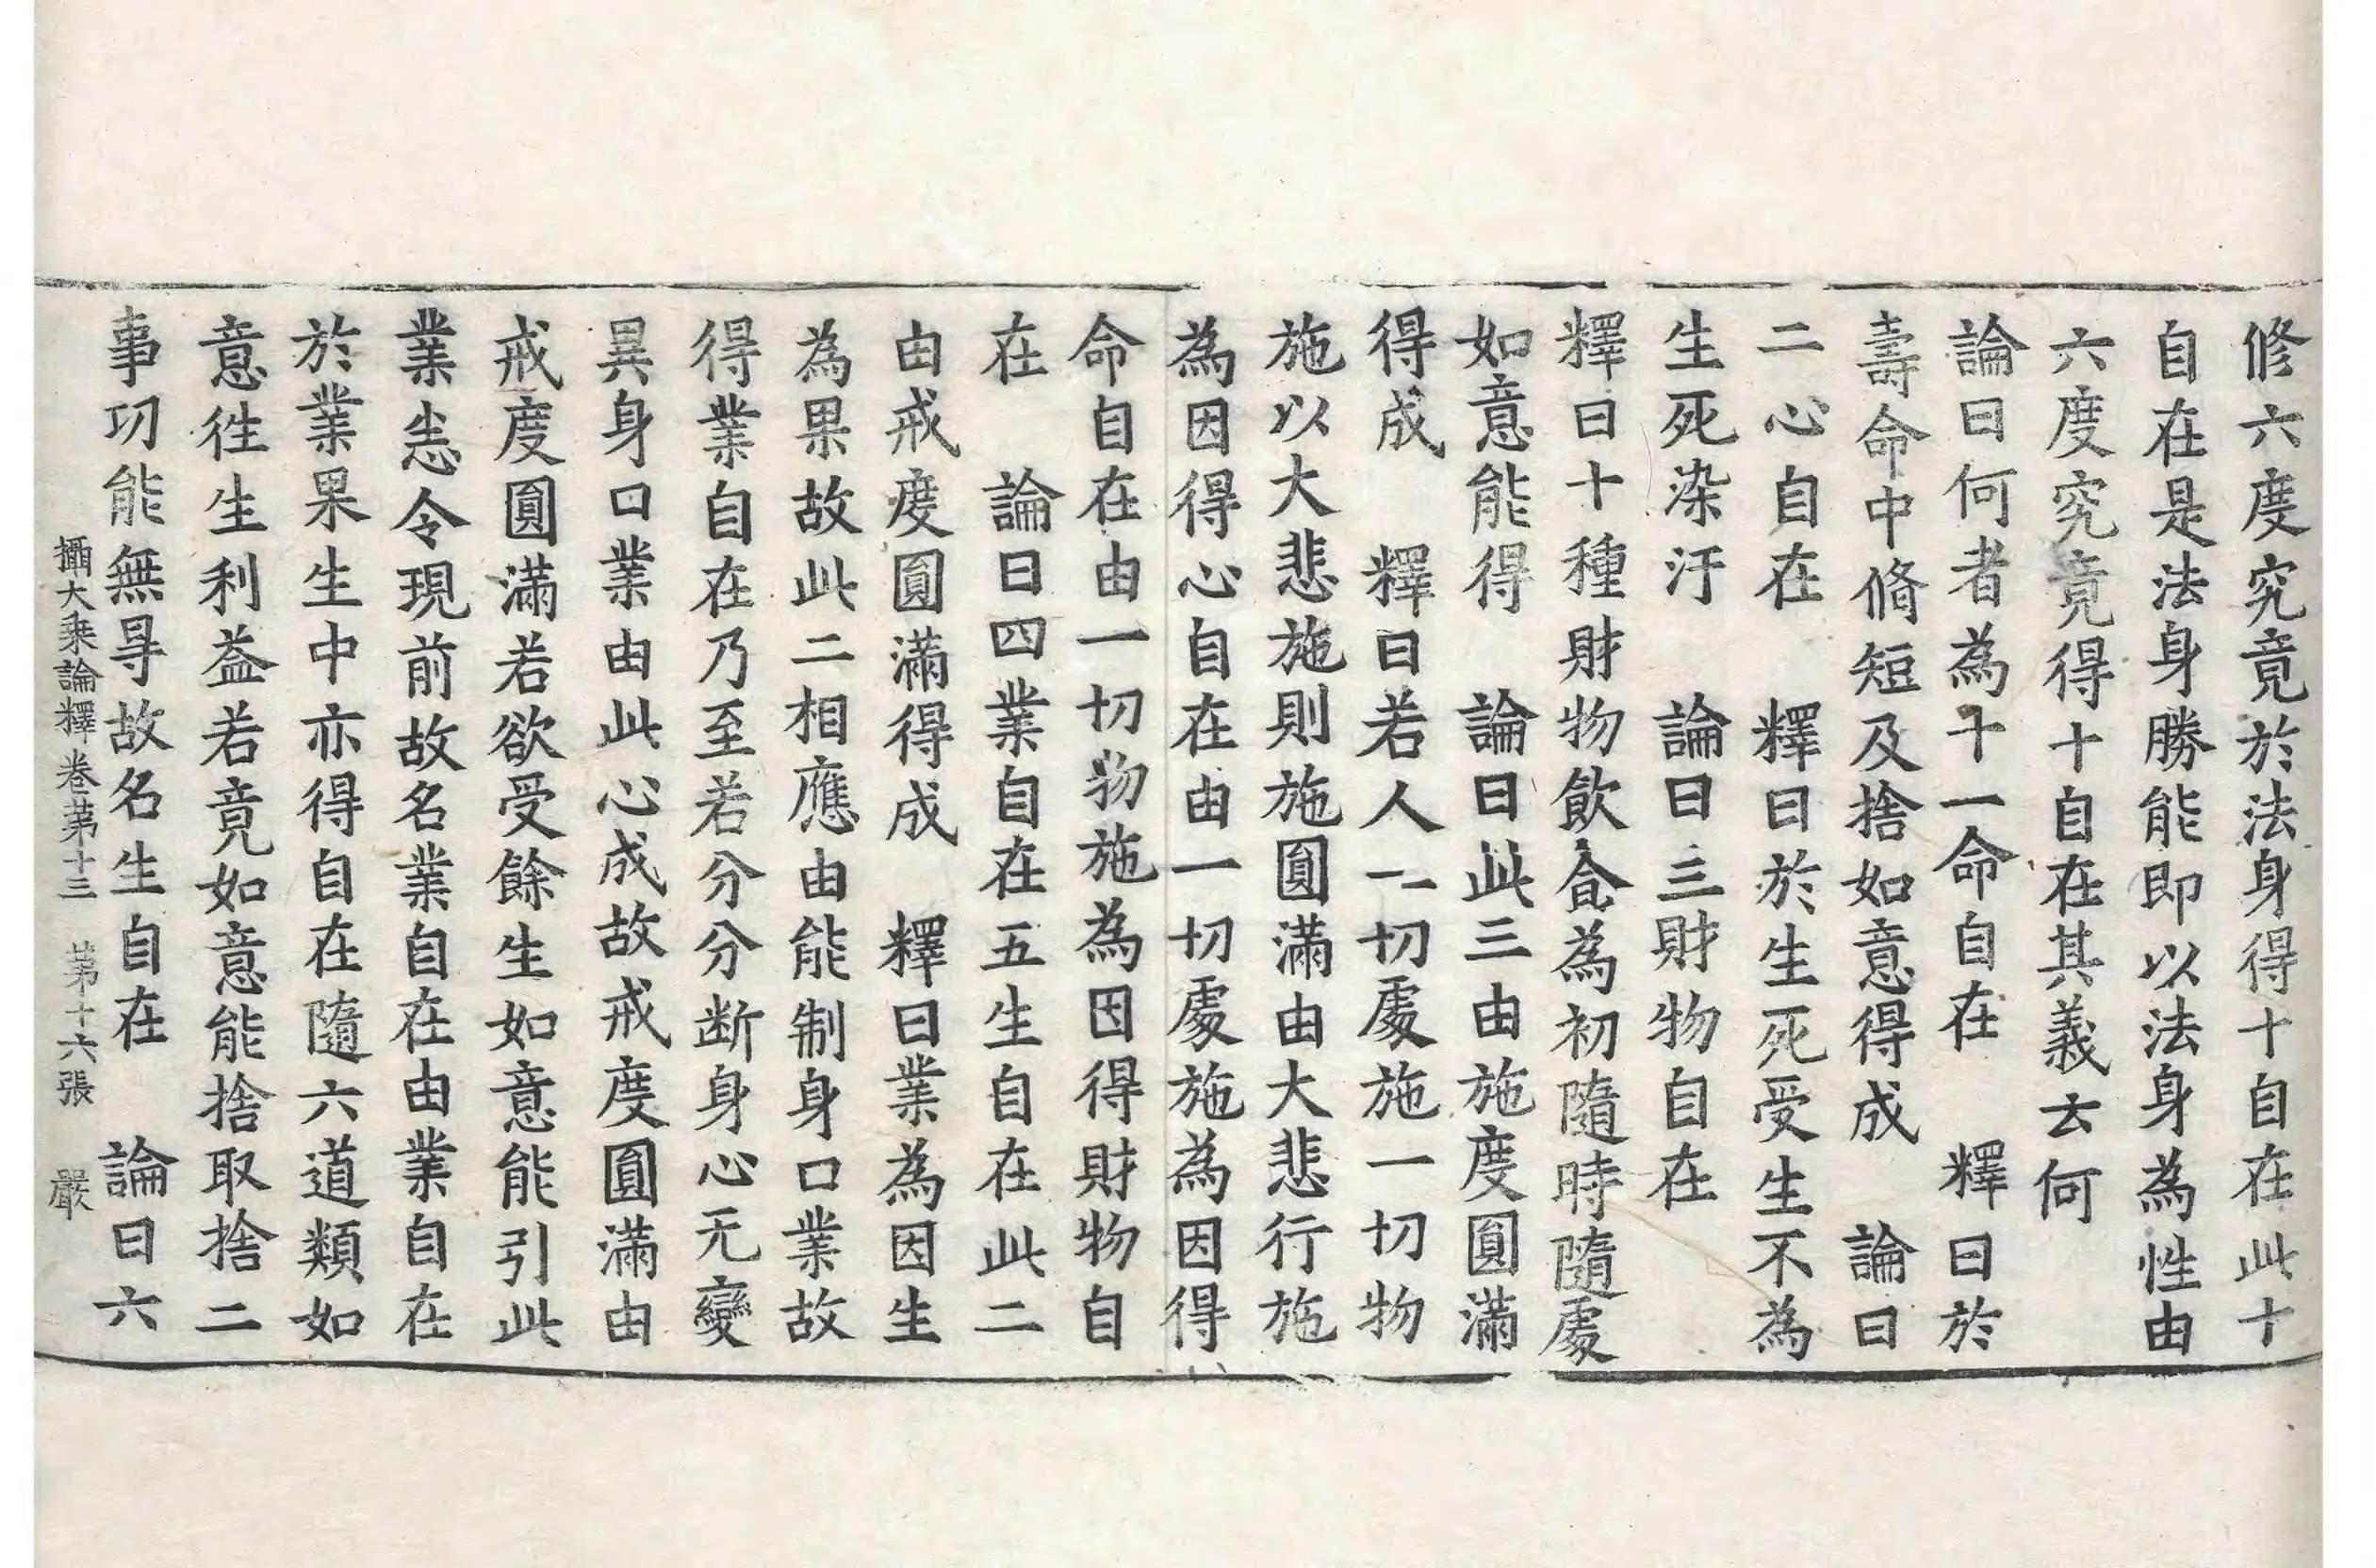 修六度究竟於法身得十自在此十
自在是法身勝能即以法身為性由
六度究竟得十自在其義云何
論曰何者為十一命自在　釋曰於
壽命中脩短及捨如意得成　論曰
二心自在　釋曰於生死受生不為
生死染汙　論曰三財物自在
釋曰十種財物飲食為初隨時隨處
如意能得　論曰此三由施度圓滿
得成　釋曰若人一一切處施一切物
施以大悲施則施圓滿由大悲行施
為因得心自在由一切處施為因得
命自在由一切物施為因得財物自
在　論曰四業自在五生自在此二
由戒度圓滿得成　釋曰業為因生
為果故此二相應由能制身口業故
得業自在乃至若分分断身心无變
異身口業由此心成故戒度圓滿由
戒度圓滿若欲受餘生如意能引此
業恙令現前故名業自在由業自在
於業果生中亦得自在隨六道類如
意徃生生利益若竟如意能捨取捨二
事㓛能無㝵故名生自在　論曰六
攝大乘論釋卷苐十三　苐十六張　嚴